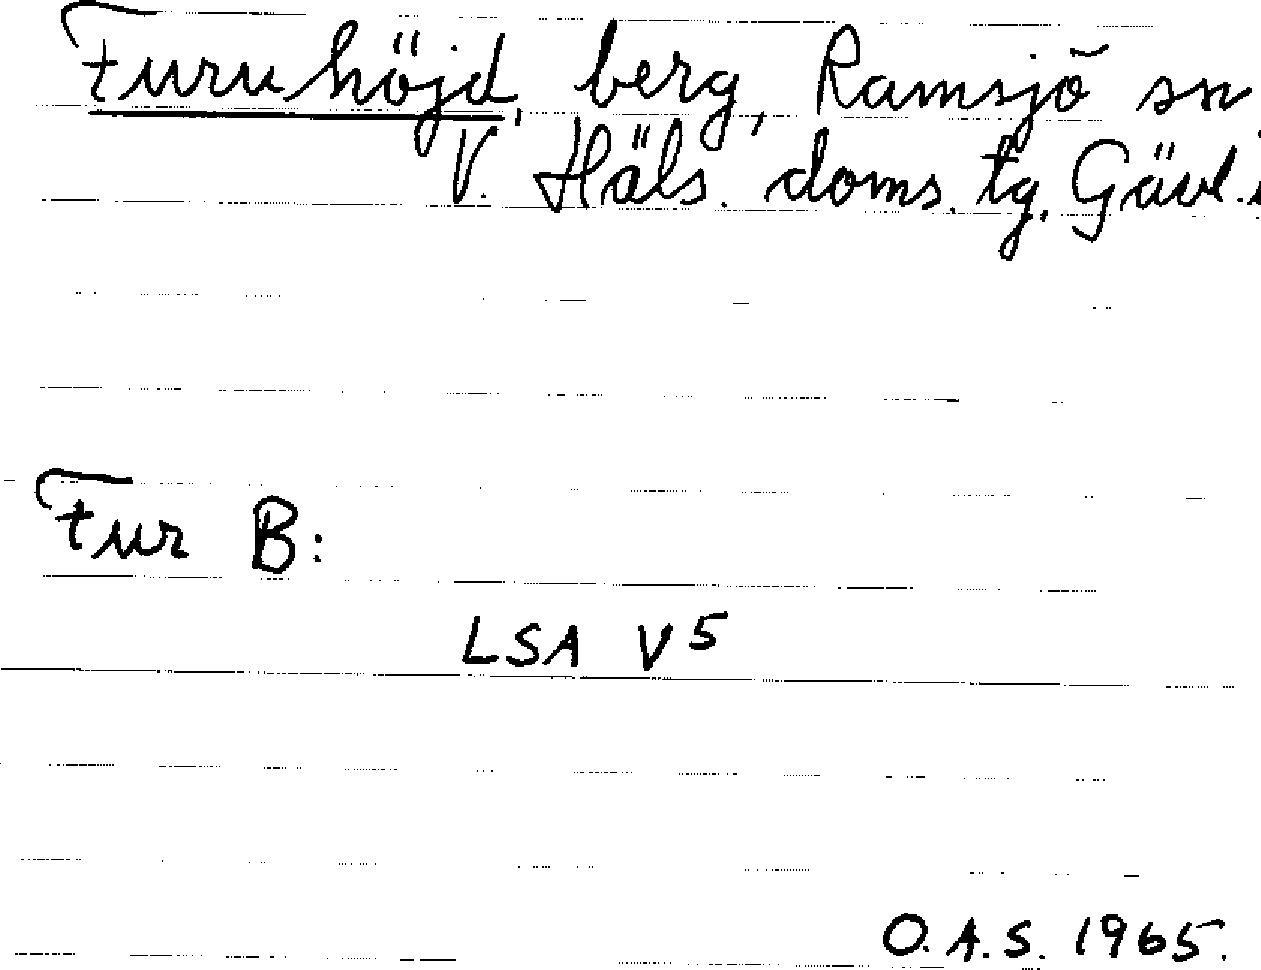 Furuhöjd, berg, Ramsjö sn
V. Häls. doms. tg. Gävl.
Fur B:
LSA V5
O.A.S. 1965.